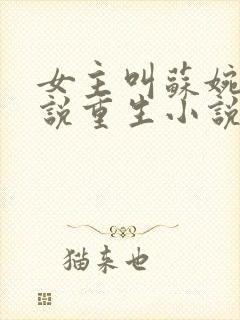 女主叫蘇婉
說重生小說
猫来也